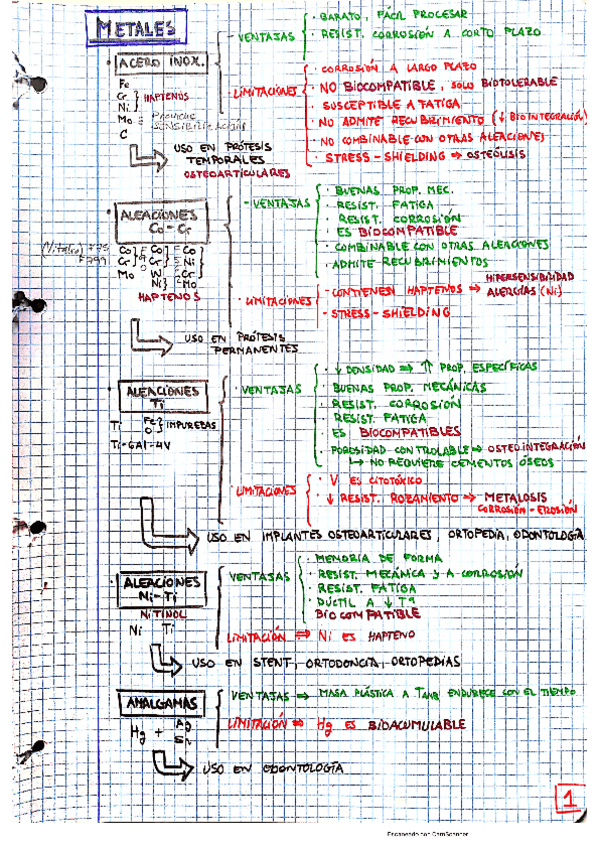 METALES
· ACERO INOX.
Fe
Cr
Ni } HAPTENOS
Mo = PREVIENE SENSIBILIZACIÓN
C
USO EN PRÓTESIS
TEMPORALES
OSTEOARTICULARES
- VENTAJAS
· BARATO, FÁCIL PROCESAR
· RESIST. CORROSIÓN A CORTO PLAZO
· LIMITACIONES
· CORROSIÓN A LARGO PLAZO
· NO BIOCOMPATIBLE, SOLO BIOTOLERABLE
· SUSCEPTIBLE A FATIGA
· NO ADMITE RECUBRIMIENTO (↓ BIOINTEGRACIÓN)
· NO COMBINABLE CON OTRAS ALEACIONES
· STRESS-SHIELDING ⇒ OSTEÓLISIS
· ALEACIONES
Co-Cr
(Vitalio) F75
F799
Co Co Co
Cr Cr Ni
Mo W Cr
Ni Mo
HAPTENOS
USO EN PRÓTESIS
PERMANENTES
- VENTAJAS
· BUENAS PROP. MEC.
· RESIST. FATIGA
· RESIST. CORROSIÓN
· ES BIOCOMPATIBLE
· COMBINABLE CON OTRAS ALEACIONES
· ADMITE RECUBRIMIENTOS
· LIMITACIONES
- CONTIENEN HAPTENOS ⇒ HIPERSENSIBILIDAD
ALERGIAS (Ni)
- STRESS-SHIELDING
· ALEACIONES
Ti
Ti Fe
O } IMPUREZAS
Ti-6Al-4V
· VENTAJAS
· ↓ DENSIDAD ⇒ ↑ PROP. ESPECÍFICAS
· BUENAS PROP. MECÁNICAS
· RESIST. CORROSIÓN
RESIST. FATIGA
· ES BIOCOMPATIBLES
· POROSIDAD CONTROLABLE ⇒ OSTEOINTEGRACIÓN
↳ NO REQUIERE CEMENTOS ÓSEOS
· LIMITACIONES
· V ES CITOTÓXICO
· ↓ RESIST. ROZAMIENTO ⇒ METALOSIS
CORROSIÓN-EROSIÓN
USO EN IMPLANTES OSTEOARTICULARES, ORTOPEDIA, ODONTOLOGÍA
· ALEACIONES
Ni-Ti
NITINOL
Ni Ti
VENTAJAS
· MEMORIA DE FORMA
· RESIST. MECÁNICA Y A CORROSIÓN
· RESIST. FATIGA
· DÚCTIL A ↓ Tª
BIOCOMPATIBLE
LIMITACIÓN ⇒ Ni ES HAPTENO
USO EN STENT, ORTODONCIA, ORTOPEDIAS
· AMALGAMAS
Hg + Ag
Sn
VENTAJAS ⇒ MASA PLÁSTICA A Tamb ENDURECE CON EL TIEMPO
LIMITACIÓN ⇒ Hg ES BIOACUMULABLE
USO EN ODONTOLOGÍA
1
Escaneado con CamScanner